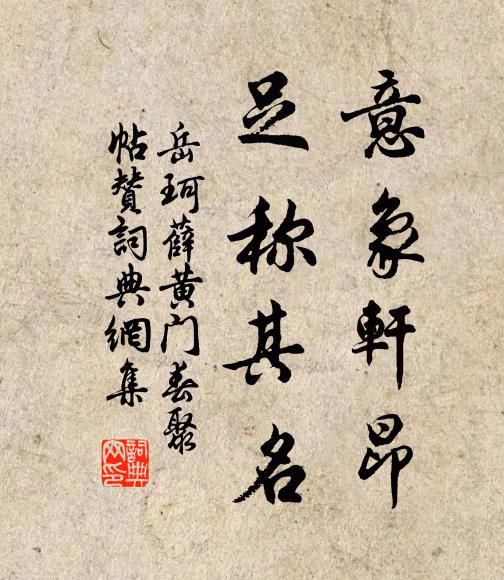 意象軒昂
足称其名
岳珂薛黄门春聚
帖赞詞典網集
詞典网印